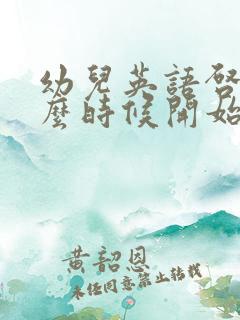 幼兒英語啓
麼時候開始
黃韶恩
未经同意禁止转载